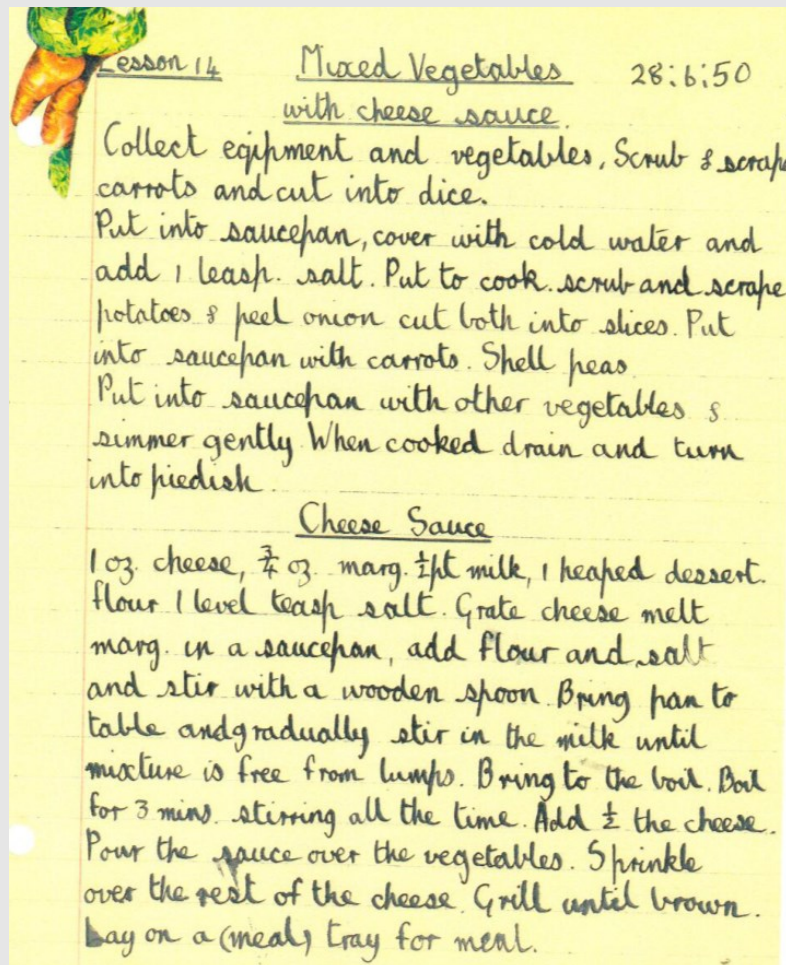 Lesson 14 Mixed Vegetables 28:6:50
with cheese sauce.
Collect eqipment and vegetables, Scrub & scrape
carrots and cut into dice.
Put into saucepan, cover with cold water and
add 1 teasp. salt. Put to cook. scrub and scrape
potatoes & peel onion cut both into slices. Put
into saucepan with carrots. Shell peas
Put into saucepan with other vegetables &
simmer gently When cooked drain and turn
into piedish.
Cheese Sauce
1 oz. cheese, ¾ oz. marg. ½pt milk, 1 heaped dessert.
flour 1 level teasp salt. Grate cheese melt
marg. in a saucepan, add flour and salt
and stir with a wooden spoon. Bring pan to
table and gradually stir in the milk until
mixture is free from lumps. Bring to the boil. Boil
for 3 mins. stirring all the time. Add ½ the cheese.
Pour the sauce over the vegetables. Sprinkle
over the rest of the cheese. Grill until brown.
Lay on a (meal) tray for meal.